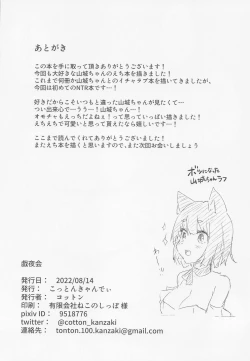 あとがき
この本を手に取って頂きありがとうございます！
今回も大好きな山城ちゃんのえち本を描きました！
これまで何冊か山城ちゃんとのイチャラブ本を描いてきましたが、
今回は初めてのNTR本です…！
好きだからこそいつもと違った山城ちゃんが見たくて…
つい出来心で……うう……！
オモチャもえっちだよねっ！って思っていっぱい描きました！
えっちで可愛いと思って頂けたら嬉しいです…！
ここまで読んでくれてありがとうございました！
またえち本を描くと思いますので、また次回お会いしましょう
ボツになった
山城ちゃんラフ
戯夜会
発行日： 2022/08/14
発行： こっとんきゃんでぃ
発行者： コットン
印刷： 有限会社ねこのしっぽ 様
pixiv ID： 9518776
twitter： @cotton_kanzaki
連絡先： tonton.100.kanzaki@gmail.com